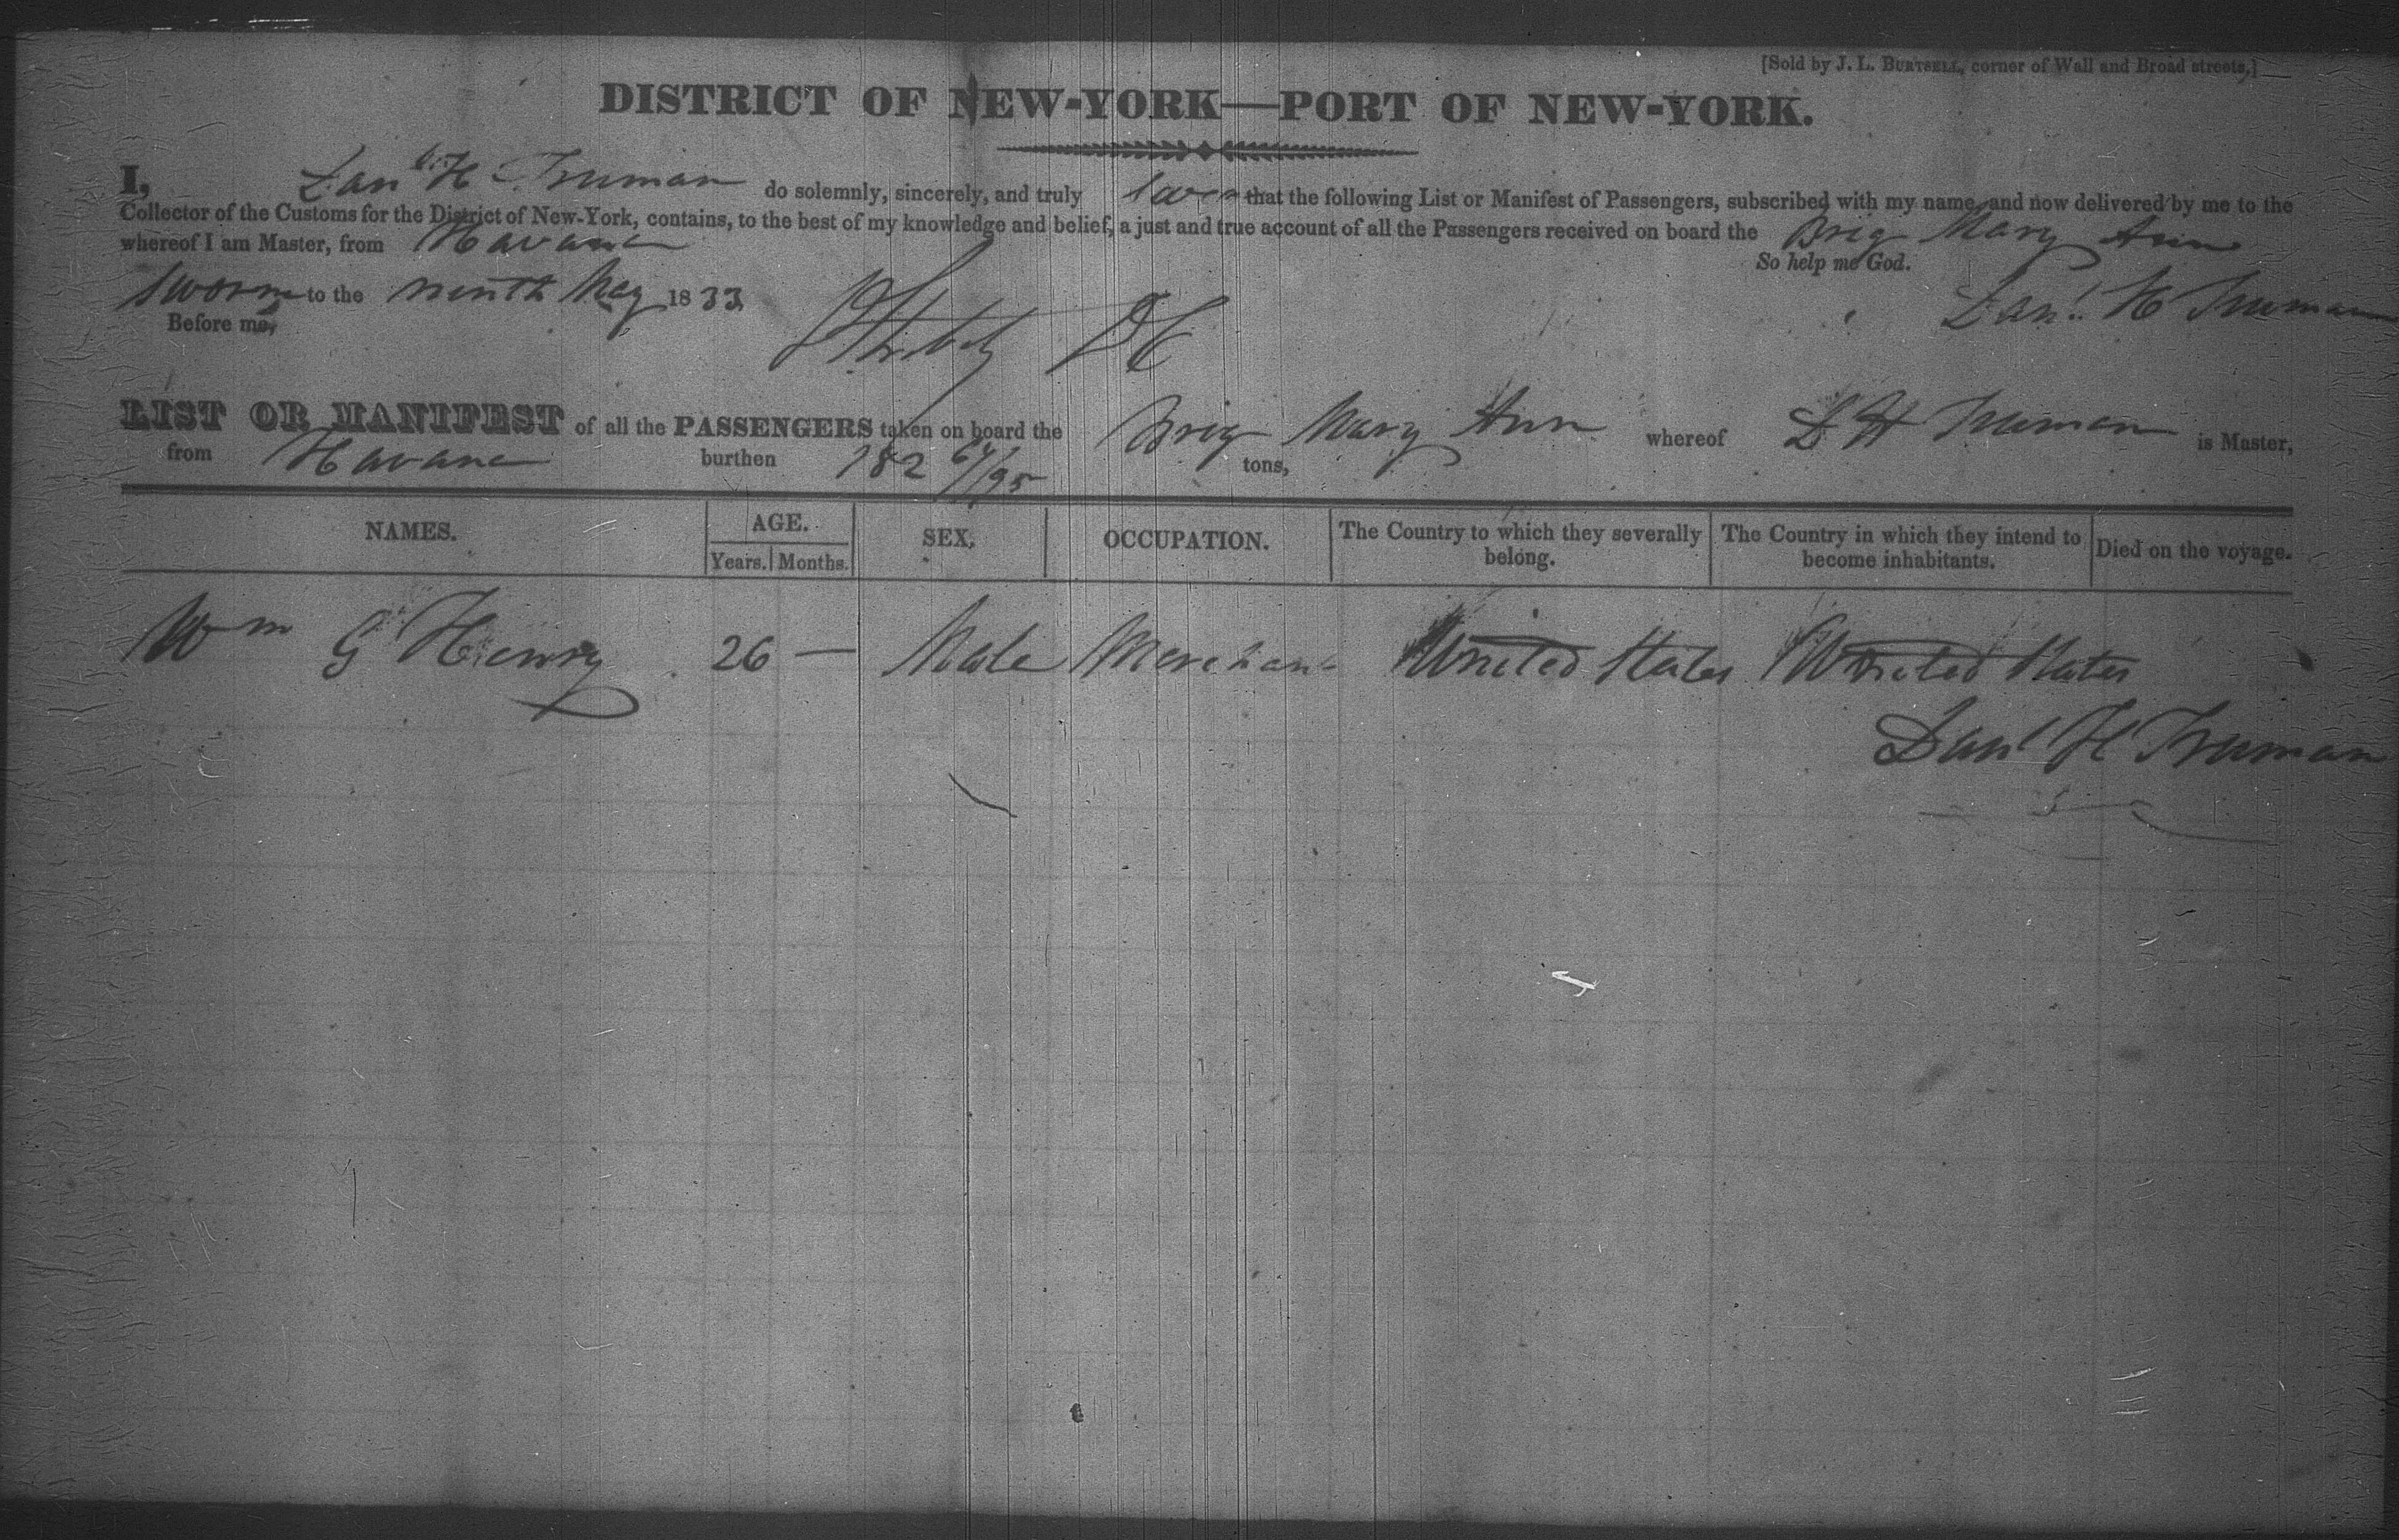 [Sold by J. L. BURTSELL, corner of Wall and Broad streets,]
DISTRICT OF NEW-YORK—PORT OF NEW-YORK.
I, Danl H Truman do solemnly, sincerely, and truly that the following List or Manifest of Passengers, subscribed with my name, and now delivered by me to the
Collector of the Customs for the District of New-York, contains, to the best of my knowledge and belief, a just and true account of all the Passengers received on board the Brig Mary Ann
whereof I am Master, from Havana
So help me God.
Sworn to the ninth May 1833
Danl. H Truman
Before me,
LIST OR MANIFEST of all the PASSENGERS taken on board the Brig Mary Ann whereof D H Truman is Master,
from Havana burthen 182 64/95 tons,
NAMES. AGE. SEX. OCCUPATION. The Country to which they severally belong. The Country in which they intend to become inhabitants. Died on the voyage.
Years. Months.
Wm G Henry 26 — Male Merchant United States United States
Danl H Truman